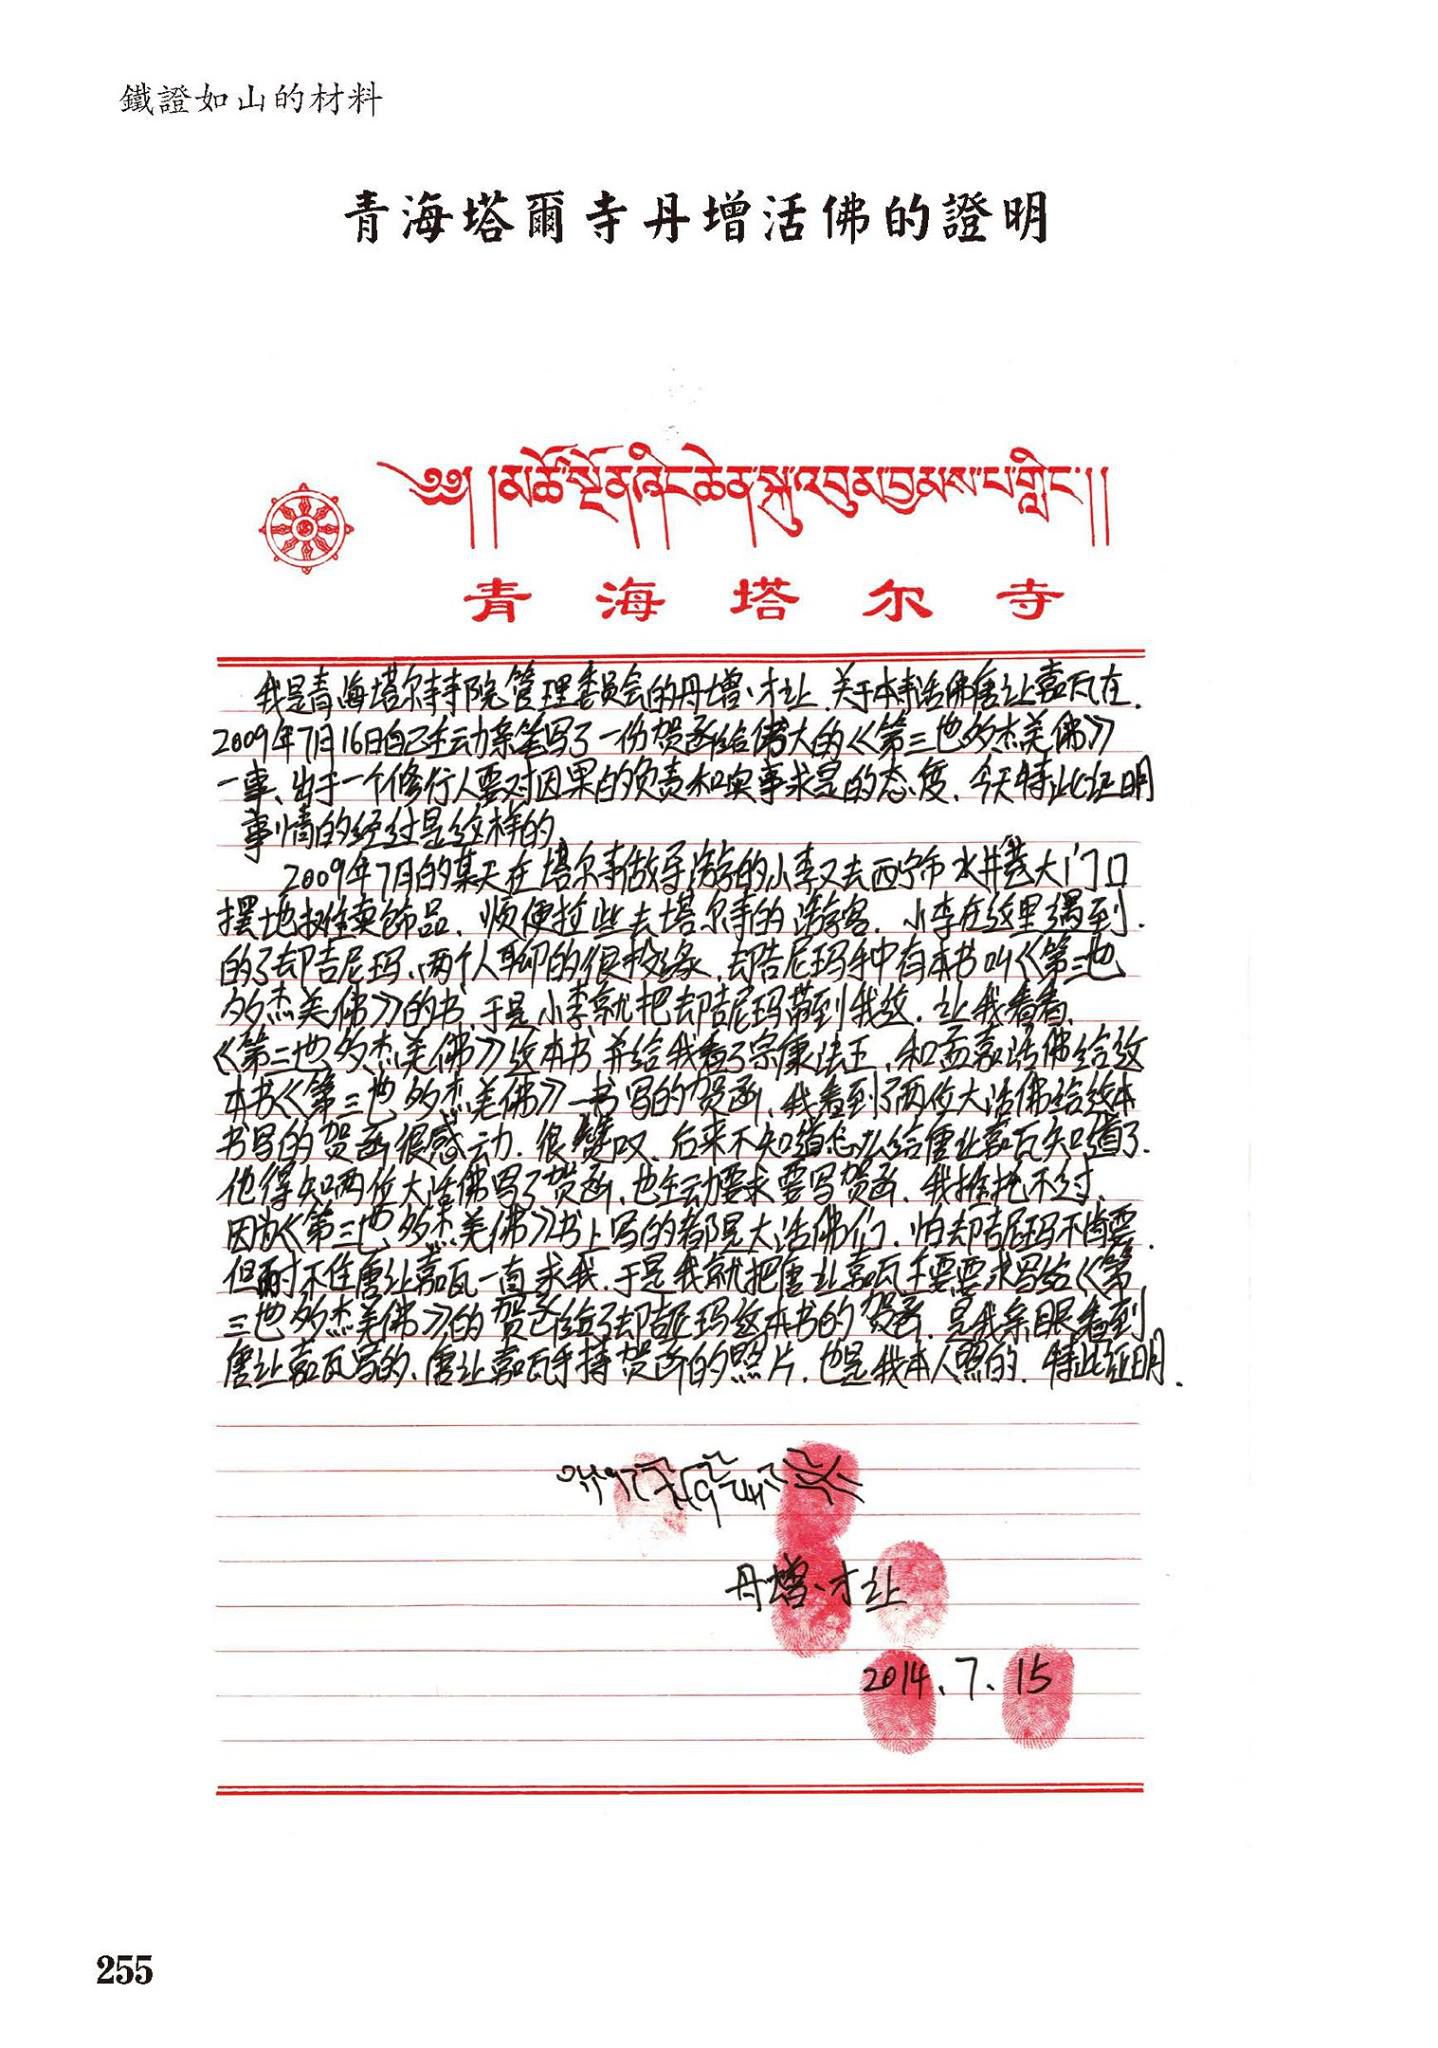 鐵證如山的材料
青海塔爾寺丹增活佛的證明
༄༅། །མཚོ་སྔོན་ཞིང་ཆེན་སྐུ་འབུམ་བྱམས་པ་གླིང་།།
青海塔尔寺
我是青海塔尔寺寺院管理委员会的丹增·才让.关于本寺活佛唐让嘉瓦在.
2009年7月16日自己主动亲笔写了一份贺函给伟大的《第三世多杰羌佛》
一事、出于一个修行人要对因果的负责和实事求是的态度、今天特此证明
事情的经过是这样的、
2009年7月的某天在塔尔寺做导游的小李又去西宁市水井巷大门口
摆地摊卖饰品、顺便拉些去塔尔寺的游客.小李在这里遇到.
的了却吉尼玛、两个人聊的很投缘、却吉尼玛手中有本书叫《第三世
多杰羌佛》的书、于是小李就把却吉尼玛带到我这.让我看看、
《第三世多杰羌佛》这本书并给我看了宗康法王、和孟嘉活佛给这
本书《第三世多杰羌佛》一书写的贺函、我看到了两位大活佛给这本
书写的贺函很感动.很赞叹、后来不知道怎么给唐让嘉瓦知道了.
他得知两位大活佛写了贺函、也主动要求要写贺函、我推托不过、
因为《第三世多杰羌佛》书上写的都是大活佛们、怕却吉尼玛不肯要.
但耐不住唐让嘉瓦一直求我、于是我就把唐让嘉瓦主要要求写给《第
三世多杰羌佛》的贺函给了却吉尼玛这本书的贺函.是我亲眼看到
唐让嘉瓦写的、唐让嘉瓦手持贺函的照片.也是我本人照的.特此证明.
丹增·才让
2014.7.15
255